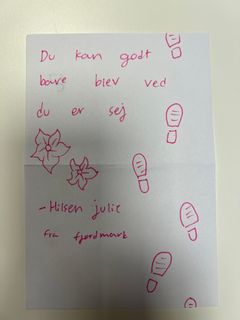 Du kan godt
bare blev ved
du er sej
-Hilsen julie
fra fjordmark